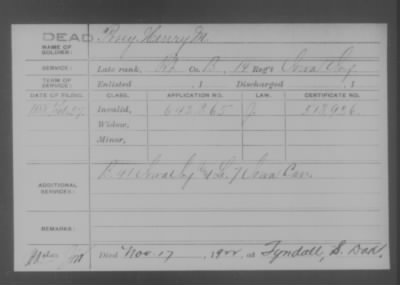 DEAD
NAME OF SOLDIER: Henry M.
SERVICE: Late rank, Co. B, 14 Reg't Iowa Inf.
TERM OF SERVICE: Enlisted , 1 Discharged , 1
DATE OF FILING. CLASS. APPLICATION NO. LAW. CERTIFICATE NO.
Invalid, 513926
Widow,
Minor,
ADDITIONAL SERVICES: Iowa Inf & L. 7 Iowa Cav.
REMARKS:
Died Nov. 17, 19 , at Tyndall, S. Dak.